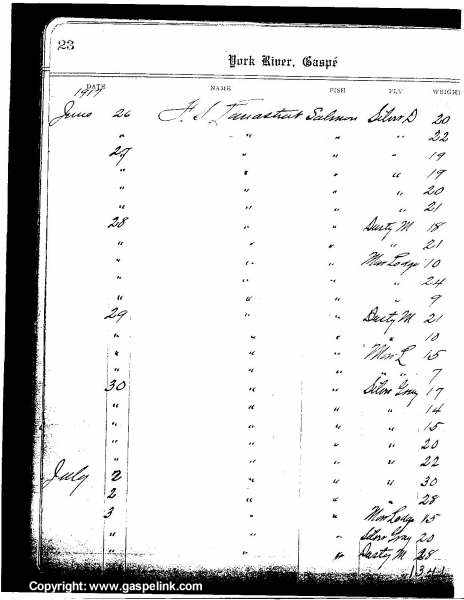 23
York River, Gaspé
DATE NAME FISH FLY WEIGHT
1917
June 26 Salmon Silver D 20
" " " " 22
27 " " " 19
" " " " 19
" " " " 20
" " " " 21
28 " " Dusty M 18
" " " " 21
" " " Mrs Lodge 10
" " " " 24
" " " " 9
29 " " Dusty M 21
" " " " 10
" " " Mrs L 15
" " " " 7
30 " " Silver Gray 17
" " " " 14
" " " " 15
" " " " 20
" " " " 22
July 2 " " " 30
2 " " " 28
3 " " Mrs Lodge 15
" " " Silver Gray 20
" " " Dusty M 28
Copyright: www.gaspelink.com